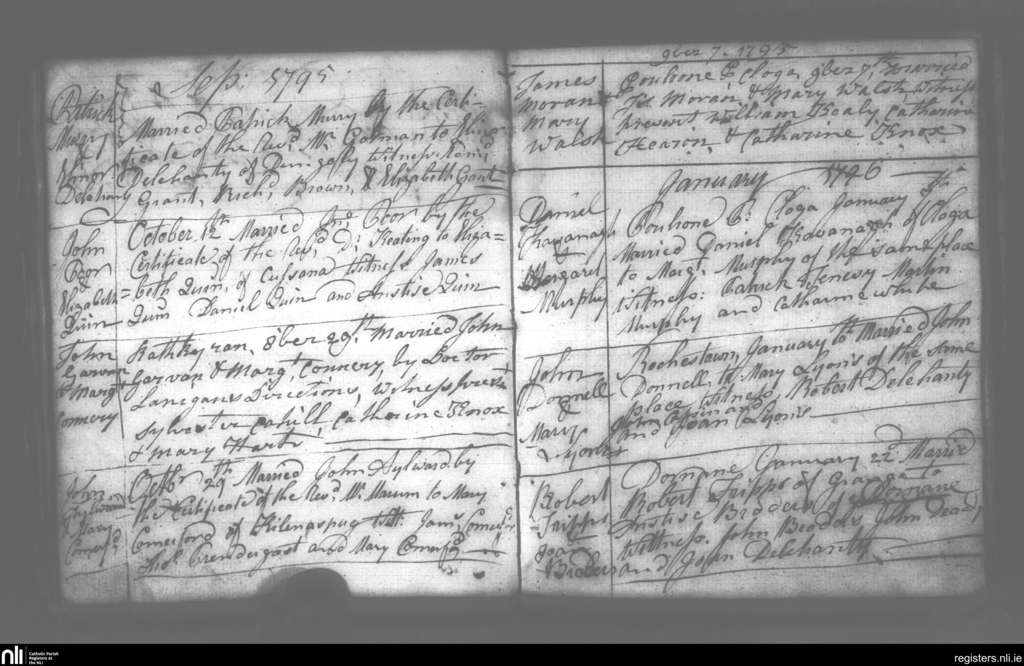 Sep: 1795
Patrick
Murry
Elinor
Delehanty
Married Patrick Murry By the Certi-
ficate of the Revd. Mr. Gorman to Elinor
Delehanty of
Grant, Richd. Brown, & Elizabeth Grant
John
Poor
Elizabeth
Quin
October 12th Married Jno. Poor by the
Certificate of the Revd. Dr. Keating to Eliza=
beth Quin, of Cussana Witness James
Quin Daniel Quin and Anstise Quin
John
Garvan
& Margt.
Connery
Rathkyran, 8ber 29th. Married John
Garvan & Margt. Connery, by Doctor
Lanegans Directions, Witness present
Sylvester Cahill, Catherine Knox
& Mary Hart
John
Aylward
Mary
Comerfd.
Octbr. 29th Married John Aylward by
the Certificate of the Revd. Mr. Marum to Mary
Comerford of
Prendergast and Mary Comerfd.
9ber 7. 1795
James
Moran
Mary
Walsh
Poulrone P. Cloga, 9ber 7th, married
Js. Moran & Mary Walsh Witness
present William Healy Catharine
& Catharine Knox
January 1796
Daniel
Kavanagh
Margaret
Murphy
Poulrone Pr. Cloga January
Married Daniel Kavanagh of Cloga
to Margt. Murphy of the same place
Witness: Patrick Martin
Murphy and Catharine White
John
Donnell
&
Mary
Lyons
Rochestown, January 10th Married John
Donnell, to Mary Lyons of the same
place, Witness Robert Delehanty
and Joan Lyons
Robert
Tripps
Joan
Bidders
Dornane January 22d. Married
Robert Tripps of Grange to
Anstise Bidders of Dornane
Wittness. John John
and Joan Delehanty
nli
Catholic Parish
Registers at
the NLI
registers.nli.ie